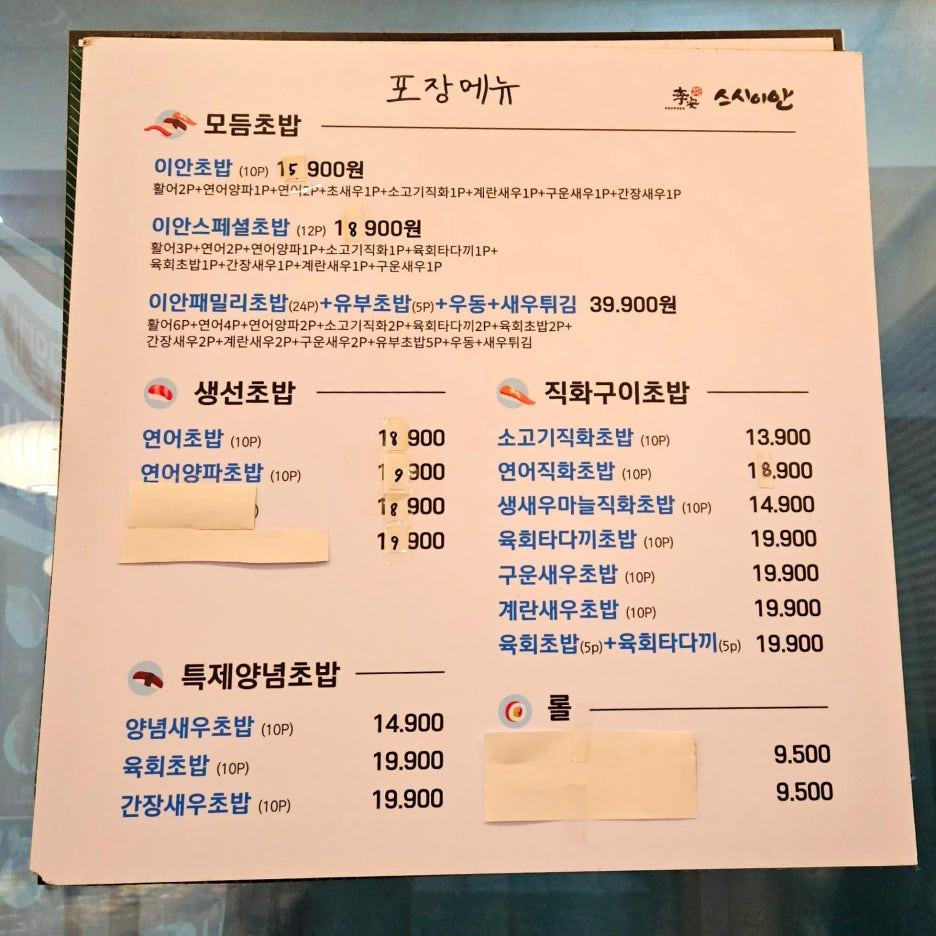 포장메뉴
李安 스시이안
모듬초밥
이안초밥 (10P) 15.900원
활어2P+연어양파1P+연어2P+초새우1P+소고기직화1P+계란새우1P+구운새우1P+간장새우1P
이안스페셜초밥 (12P) 18.900원
활어3P+연어2P+연어양파1P+소고기직화1P+육회타다끼1P+
육회초밥1P+간장새우1P+계란새우1P+구운새우1P
이안패밀리초밥(24P)+유부초밥(5P)+우동+새우튀김 39.900원
활어6P+연어4P+연어양파2P+소고기직화2P+육회타다끼2P+육회초밥2P+
간장새우2P+계란새우2P+구운새우2P+유부초밥5P+우동+새우튀김
생선초밥
연어초밥 (10P) 18.900
연어양파초밥 (10P) 19900
) 18.900
19900
특제양념초밥
양념새우초밥 (10P) 14.900
육회초밥 (10P) 19.900
간장새우초밥 (10P) 19.900
직화구이초밥
소고기직화초밥 (10P) 13.900
연어직화초밥 (10P) 18.900
생새우마늘직화초밥 (10P) 14.900
육회타다끼초밥 (10P) 19.900
구운새우초밥 (10P) 19.900
계란새우초밥 (10P) 19.900
육회초밥(5p)+육회타다끼(5p) 19.900
롤
9.500
9.500